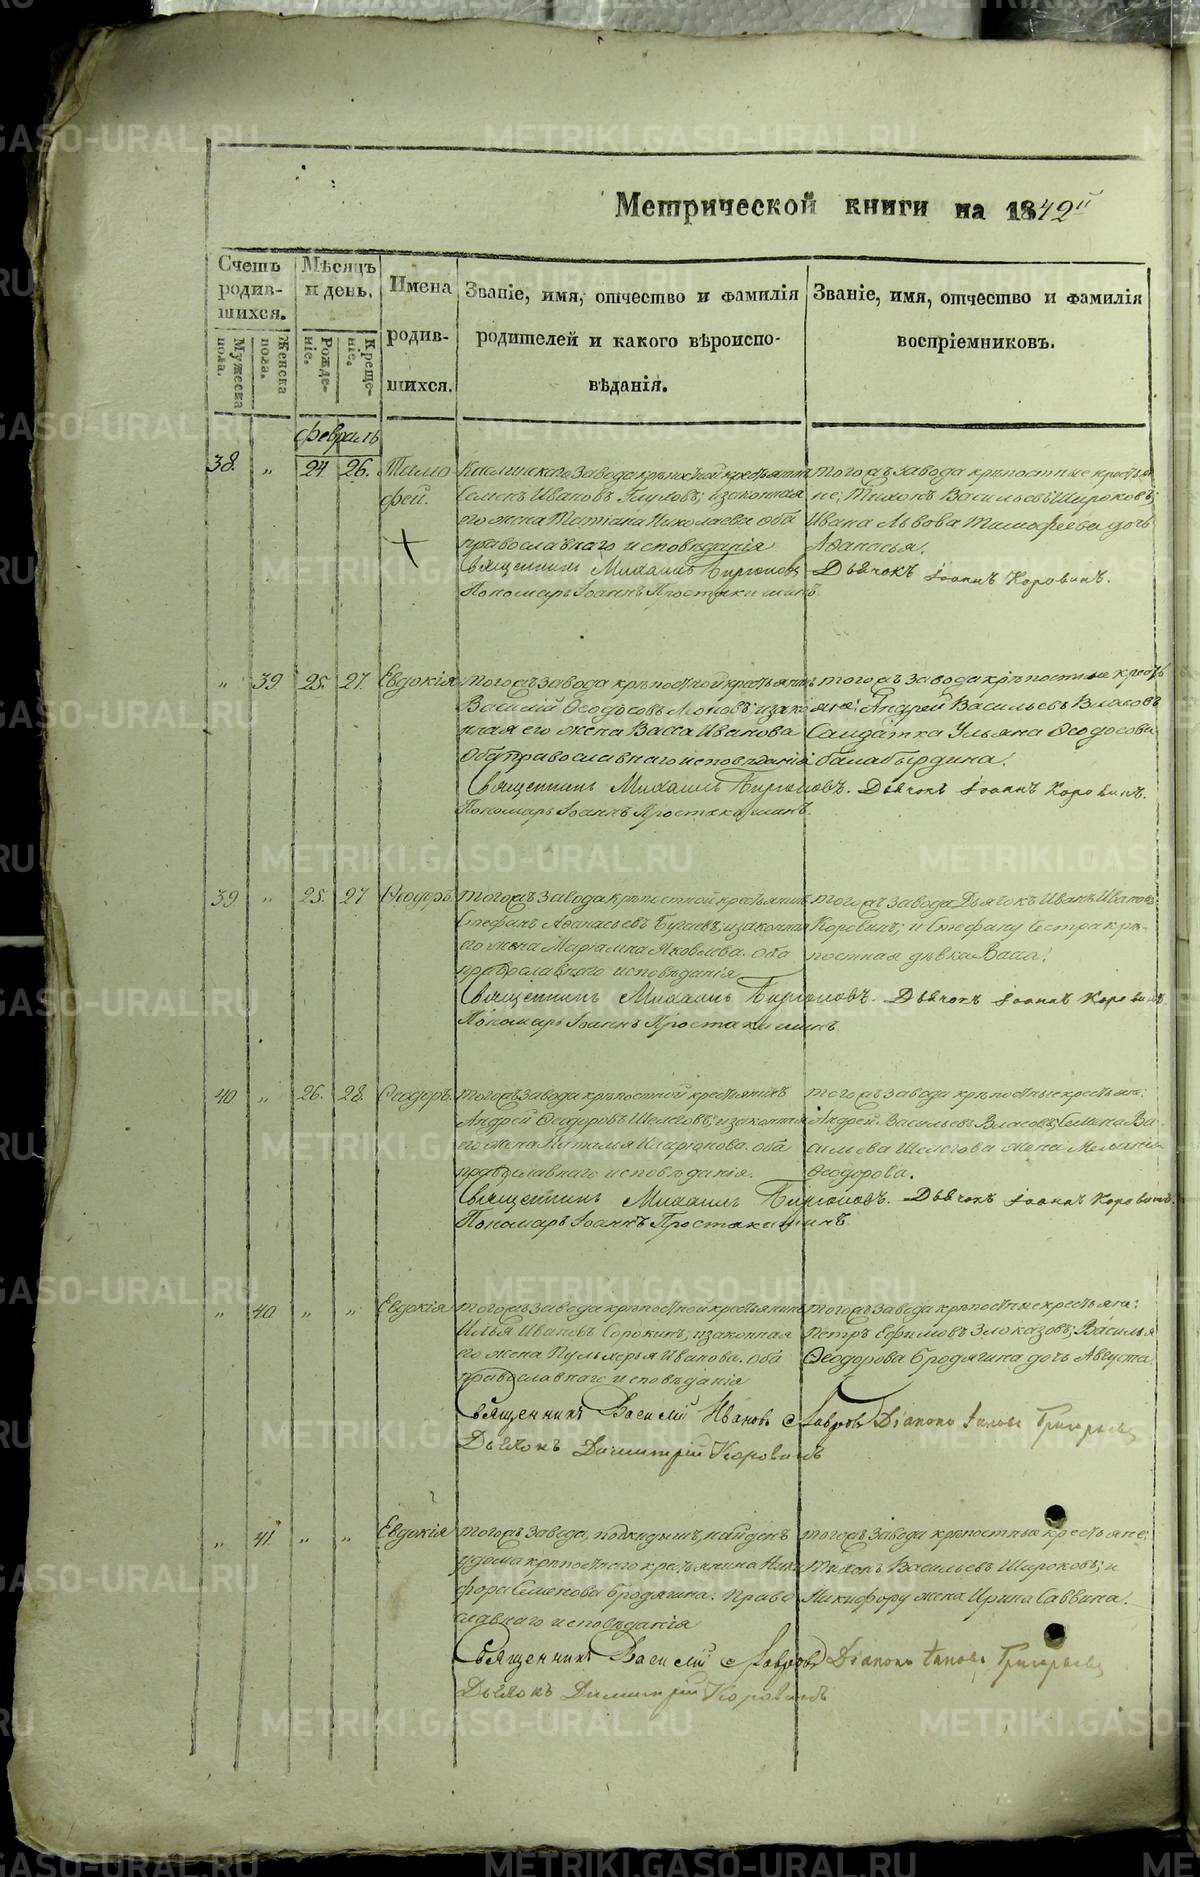 Метрической книги на 1842й
Счетъ родив-шихся.
Мужеска пола.
Женска пола.
Мѣсяцъ и день.
Рожде-нiе.
Креще-нiе.
Имена
родив-
шихся.
Званiе, имя, отчество и фамилiя
родителей и какого вѣроиспо-
вѣданiя.
Званiе, имя, отчество и фамилiя
воспрiемниковъ.
февраль
38. " 24 26. Тимо
фей.
Каслинскаго завода крѣпостной крестьянинъ
Семенъ Ивановъ; и законная
его жена Татiана Николаева оба
православнаго исповѣданiя
Священникъ Михаилъ Бирюковъ
Пономарь Iоаннъ Простакишинъ.
тогожъ завода крѣпостные крестья
не; Тихонъ Васильевъ Широковъ;
Ивана Львова Тимофеева дочь
Афанасья.
Дьячокъ Iоаннъ Коровинъ.
" 39 25. 27. Евдокiя
тогожъ завода крѣпостной крестьянинъ
Василiй Ѳеодосовъ; и закон
ная его жена Васса Иванова
оба православнаго исповѣданiя
Священникъ Михаилъ Бирюковъ.
Пономарь Iоаннъ Простакишинъ.
тогожъ завода крѣпостные кресть
яне: Андрей Васильевъ Власовъ
Салдатка Ульяна Ѳеодосова
балабырдина.
Дьячокъ Iоаннъ Коровинъ.
39 " 25. 27 Ѳеодоръ.
тогожъ завода крѣпостной крестьянинъ
Стефанъ Афанасьевъ; и законная
его жена Марiамна Яковлева. оба
православнаго исповѣданiя
Священникъ Михаилъ Бирюковъ.
Пономарь Iоаннъ Простакишинъ.
тогожъ завода Дьячокъ Иванъ Ивановъ
Коровинъ; и Стефану Сестра крѣ-
постная дѣвка Васса.
Дьячокъ Iоаннъ Коровинъ.
40. " 26. 28. Ѳеодоръ.
тогожъ завода крѣпостной крестьянинъ
Андрей Ѳеодоровъ Шелеговъ; и законная
его жена Наталья Иларiонова. оба
православнаго исповѣданiя.
Священникъ Михаилъ Бирюковъ.
Пономарь Iоаннъ Простакишинъ
тогожъ завода крѣпостные крестьяне:
Андрей Васильевъ Власовъ; Семена Ва-
сильева Шелегова жена Меланiя
Ѳеодорова.
Дьячокъ Iоаннъ Коровинъ.
" 40. " " Евдокiя
тогожъ завода крѣпостной крестьянинъ
Илья Ивановъ Сорокинъ; и законная
его жена Пульхерья Иванова. оба
православнаго исповѣданiя
Священникъ Василiй Ивановъ Лавровъ
Дьячокъ Димитрiй Коровинъ
тогожъ завода крѣпостные крестьяне:
Петръ Ефимовъ Злоказовъ; Василья
Ѳеодорова бродягина дочь Августа.
Дiаконъ Григорьевъ
" 41. " " Евдокiя
тогожъ завода, подкидышъ, найденъ
у дома крѣпостнаго крестьянина Ники
фора Семенова бродягина. Право
славнаго исповѣданiя
Священникъ Василiй Лавровъ
Дьячокъ Димитрiй Коровинъ
тогожъ завода крѣпостные крестьяне:
Тихонъ Васильевъ Широковъ; и
Никифору жена Ирина Саввина.
Дiаконъ Григорьевъ
METRIKI.GASO-URAL.RU